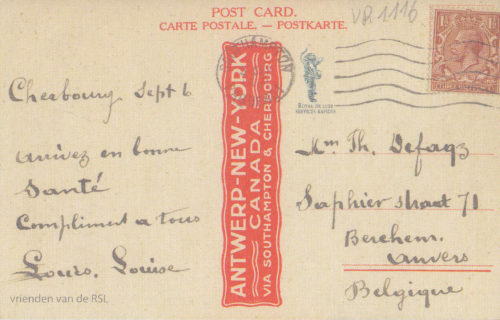 POST CARD.
CARTE POSTALE. — POSTKARTE.
VR.1116
SOUTHAMPTON
ROYAL DE LUXE
SERVICES RAPIDES
ANTWERP-NEW-YORK
CANADA
VIA SOUTHAMPTON & CHERBOURG
Cherbourg Sept 6
Arrivez en bonne
Santé
Compliment a tous
Louis, Louise
Mm Th. Defays
Saphier straat 71
Berchem.
Anvers
Belgique
vrienden van de RSL